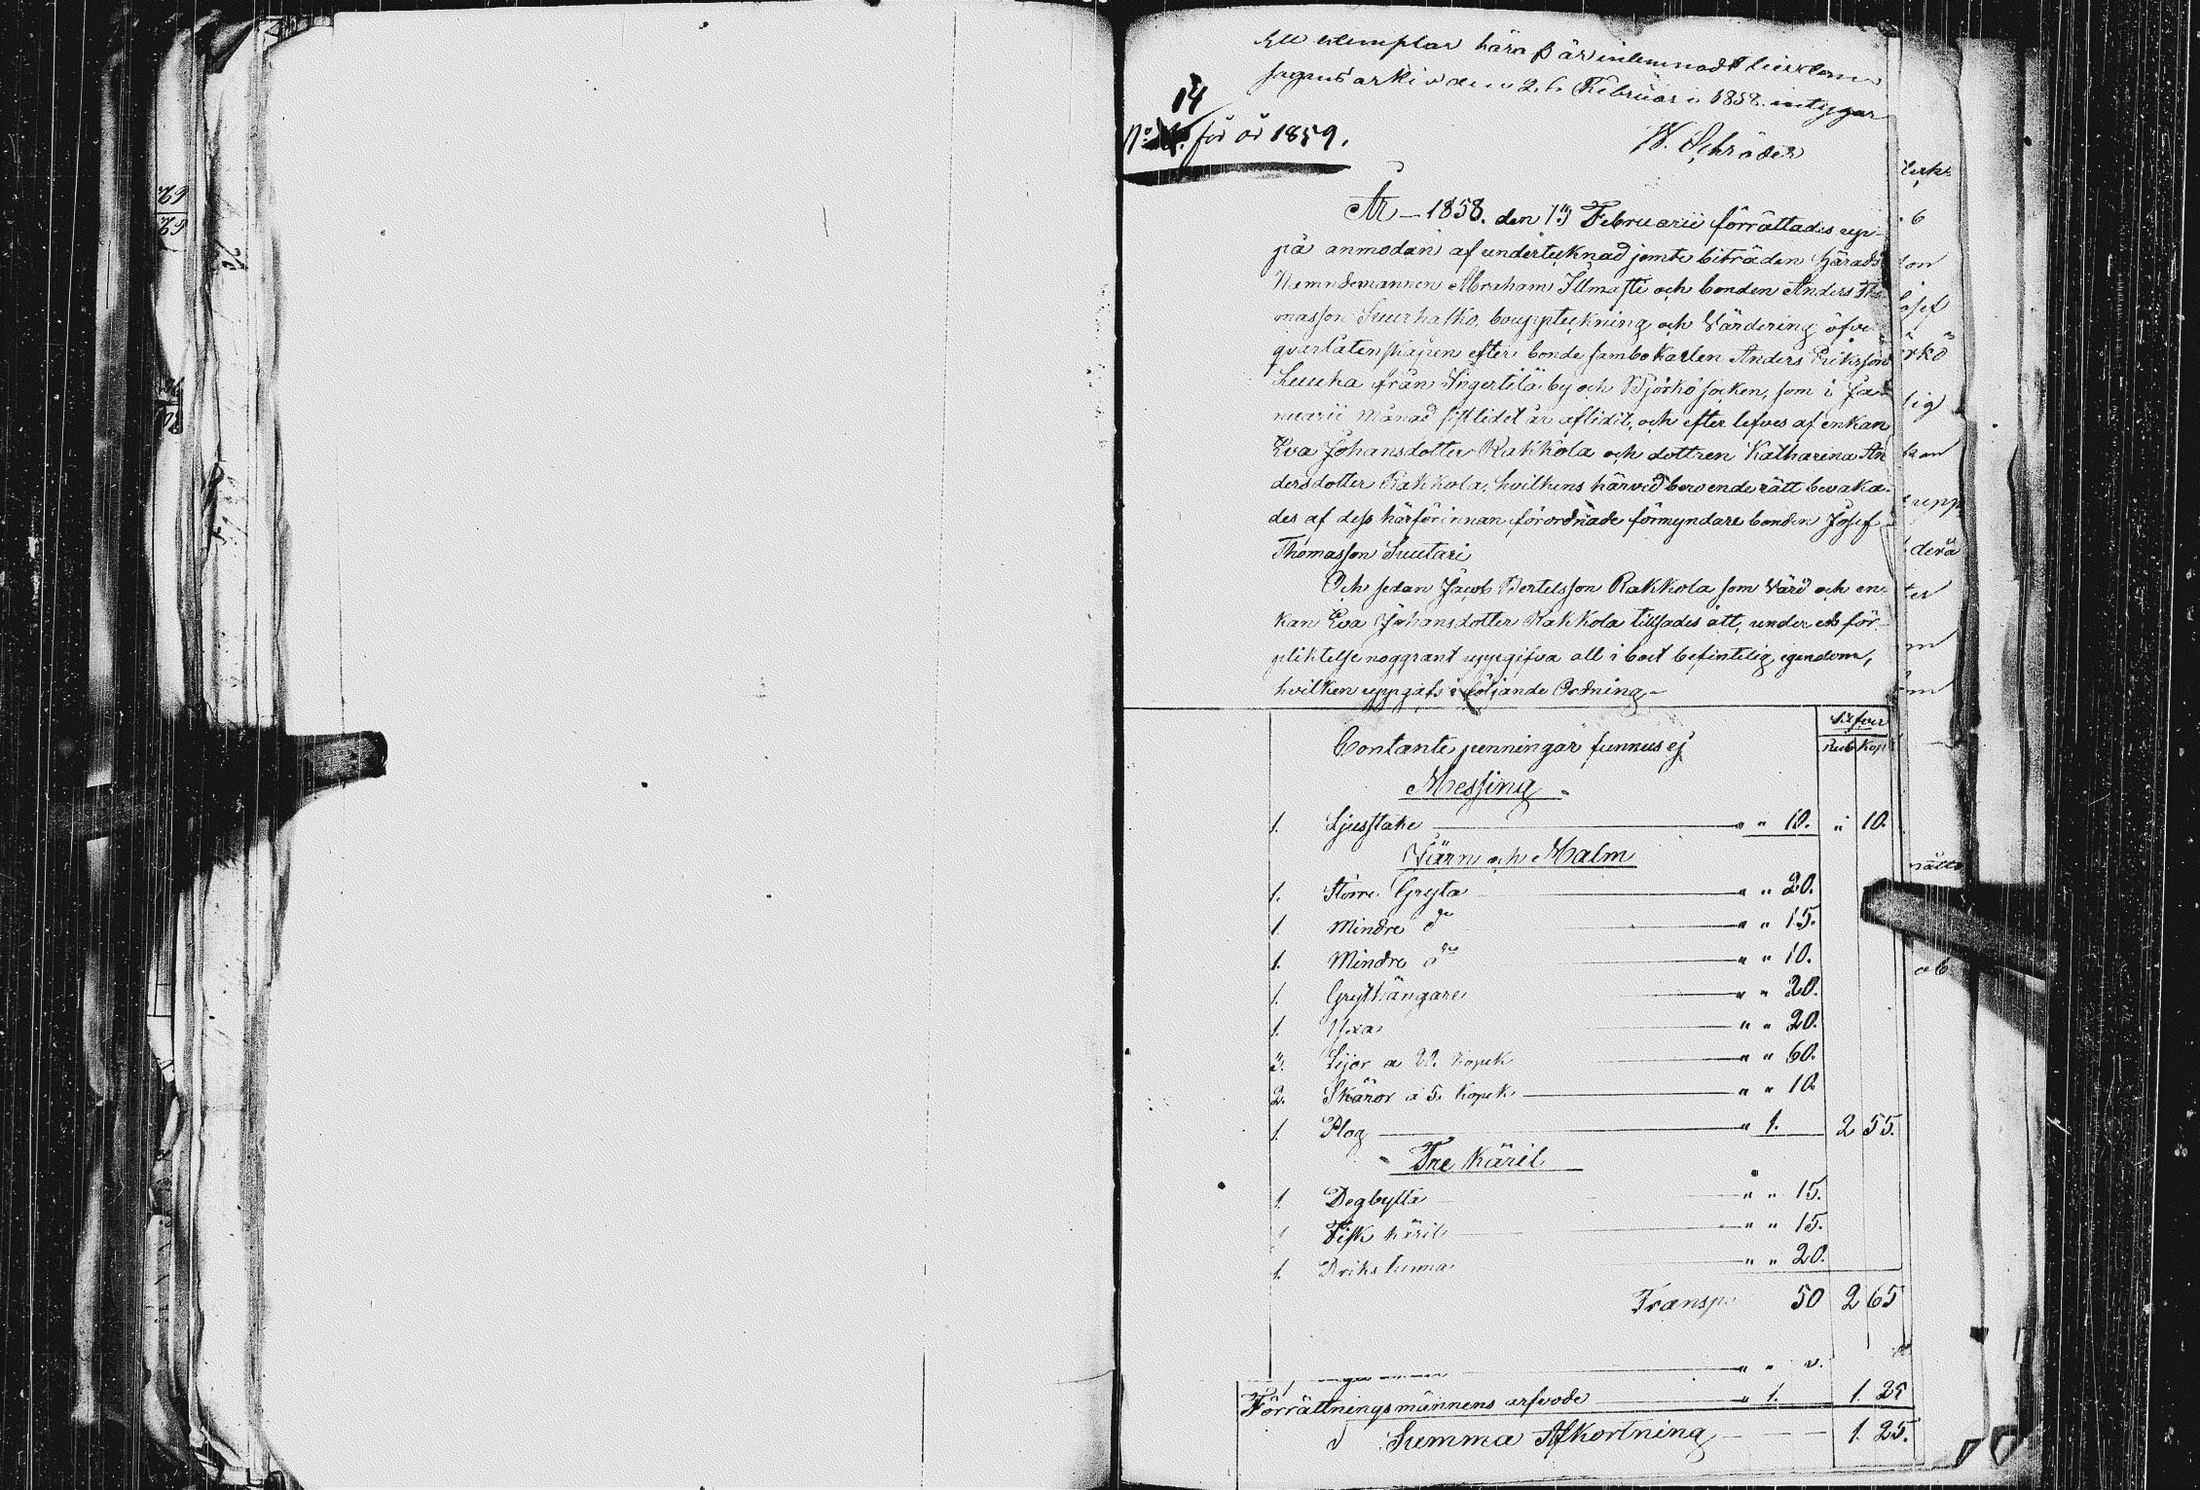 Ett exemplar häraf är inlemnadt till
arkiv den 26 Februari 1858. intygar
W. Schröder
14
No för år 1859.
År 1858. den 13 Februarii förrättades up-
på anmodan af undertecknad jemte biträden Härads
Nämndemannen Abraham Ilmasti och bonden Anders Tho-
masson Suurhasko, bouppteckning och Värdering öfver
qvarlåtenskapen efter bonde sambokarlen Anders Eriksson
Luuka från Ingertilä by och Björkö socken, som i Ja-
nuarii månad sistlidet år aflidit, och efterlefves af enkan
Eva Johansdotter Rakkola och dottren Katharina An
dersdotter Rakkola, hvilkens härvid beroende rätt bevaka-
des af dess härförinnan förordnade förmyndare bonden Josef
Thomasson Suutari
Och sedan Jacob Bertelsson Rakkola som Värd och en-
kan Eva Johansdotter Rakkola tillsades att, under eds för-
pliktelse noggrant uppgifva all i boet befintelig egendom,
hvilken uppgafs i följande Ordning
Silfver
Contante penningar funnus ej Rub Kop
Messing
1. Ljusstake " " 10. " 10.
Järn och Malm
1. Större Gryta " " 20.
1. Mindre do " " 15.
1. Mindre do " " 10.
1. Grythängare " " 20.
1. Yxa " " 20.
3. Lijor a 20. kopek " " 60.
2. Skäror a 5. kopek " " 10
1. Plog " 1. 2 55.
Träkäril
1. Degbytta " " 15.
1 Fisk käril " " 15.
1. Drikstunna " " 20.
Transp. 50 2 65
Förrättningsmännens arfvode " 1. 1. 25
Summa Afkortning 1. 25.